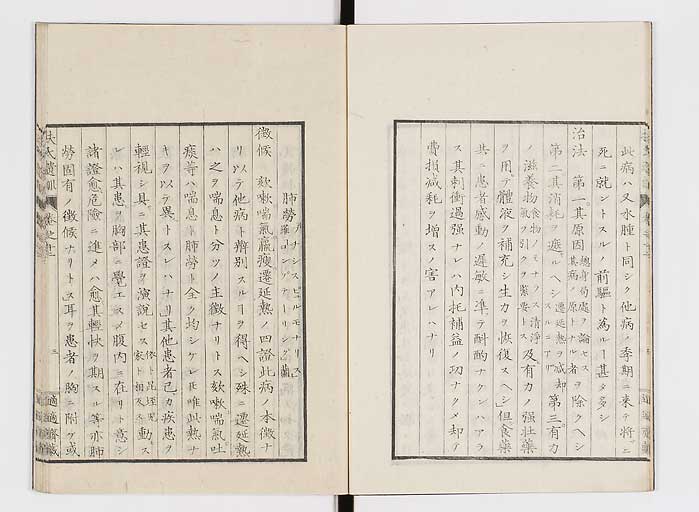 此病ハ又水腫ト同シク他病ノ季期ニ来テ將ニ
死ニ就ントスルノ前驅ト為ルヿ甚タ多シ
治法 第一其原因總身局處ヲ論セス其病ノ原トル者ヲ除クヘシ
第二其消耗ヲ遮ルヘシ遷延熱ヲ減却スルヿアリ第三有力
ノ滋養物食物ノモナラス清浄氣ヲ引クヲ緊要トス及有力ノ強壮藥
ヲ用テ體液ヲ補充シ生力ヲ恢復スヘシ但食藥
共ニ患者感動ノ遅敏ニ準テ酙酌ナクンハアラ
ス其刺衝過強ナレハ内托補益ノ功ナクメ却テ
費損減耗ヲ増スノ害アレハナリ
肺勞
徴候 欬嗽喘氣羸瘦遷延熱ノ四證此病ノ本徴ナ
リ以テ他病ト辨別スルヿヲ得ヘシ殊ニ遷延熱
ハ之ヲ喘息ト分ツノ主徴ナリトス欬嗽喘氣吐
痰等ハ喘息ト肺勞ト全ク均シケレ𪜈唯此熱ナ
キヲ以テ異トスレハナリ其他患者已カ疾患ヲ
輕視シ具ニ其患證ヲ演説セス
レハ其患ヲ胸部ニ覺エスメ腹内ニ在リト意シ
諸證愈危險ニ進メハ愈其輕快ヲ期スル等亦肺
勞固有ノ徴候ナリトス耳ヲ患者ノ胸ニ附ケ或
扶氏遺訓
適適齋藏